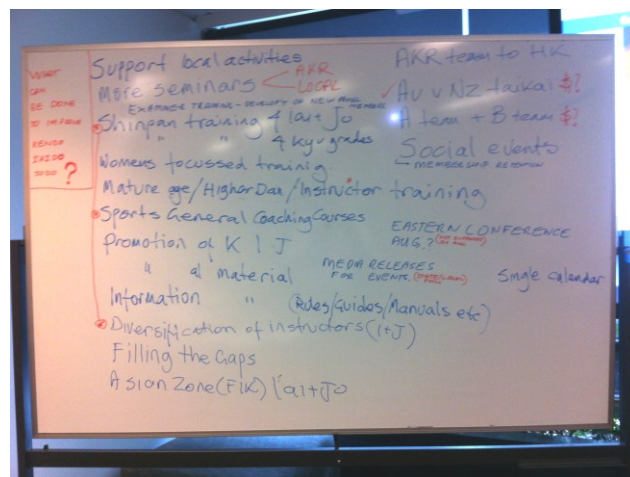 WHAT
CAN
BE DONE
TO IMPROVE
KENDO
IAIDO
JODO ?
Support local activities
More seminars < AKR
LOCAL
EXAMINER TRAINING - DEVELOP OF NEW PANEL MEMBERS
Shinpan training 4 Iai+Jo
" " 4 Kyu grades
Womens focussed training
Mature age/Higher Dan/Instructor training
Sports General Coaching Courses
Promotion of K I J
" of material
Information " (Rules/Guides/Manuals etc)
Diversification of instructors (I+J)
Filling the Gaps
Asian Zone (FIK) Iai+Jo
AKR team to HK
Au v NZ taikai $?
A team + B team $?
Social events
MEMBERSHIP RETENTION
EASTERN CONFERENCE
AUG.?
MEDIA RELEASES
FOR EVENTS.
Single calendar